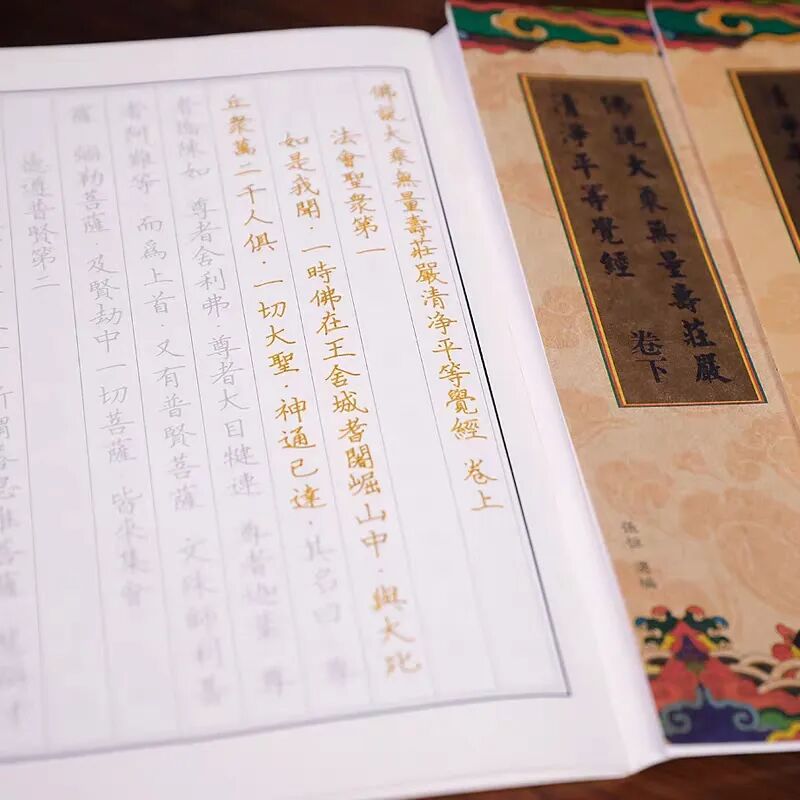 佛說大乘無量壽莊嚴
清淨平等覺經
卷下
佛說大乘無量壽莊嚴清净平等覺經 卷上
法會聖衆第一
如是我聞·一時佛在王舍城耆闍崛山中·與大比
丘衆萬二千人俱·一切大聖·神通已達·其名曰 尊
者憍陳如 尊者舍利弗·尊者大目犍連 尊者迦葉 尊
者阿難等 而爲上首·又有普賢菩薩 文殊師利菩
薩 彌勒菩薩 及賢劫中一切菩薩 皆來集會
德遵普賢第二